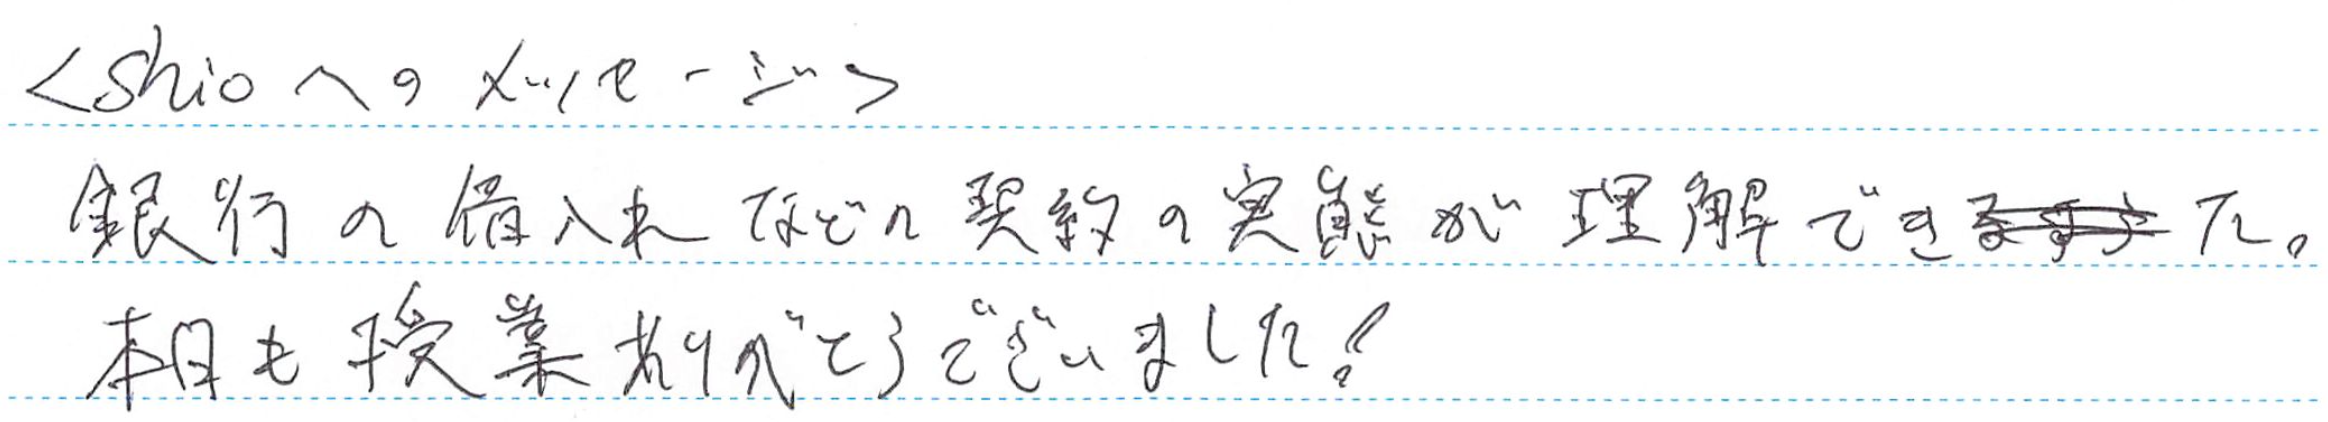 <Shioへのメッセージ>
銀行の借入れなどの契約の実態が理解できた。
本日も授業ありがとうございました!